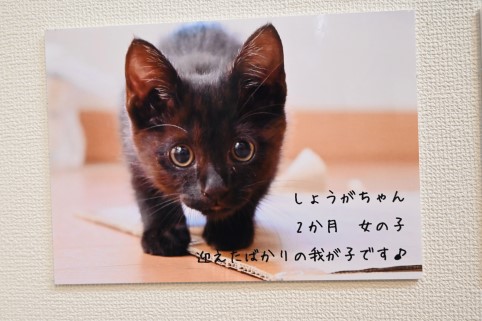 しょうがちゃん
2か月 女の子
迎えたばかりの我が子です♪